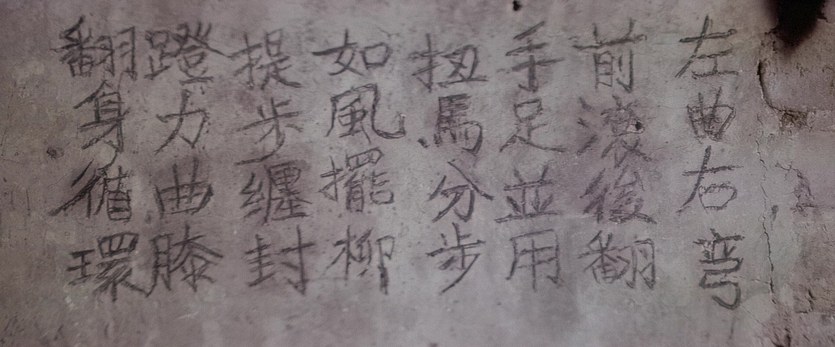 左曲右弯
前滚後翻
手足並用
扭馬分步
如風擺柳
提步纏封
蹬力曲膝
翻身循環